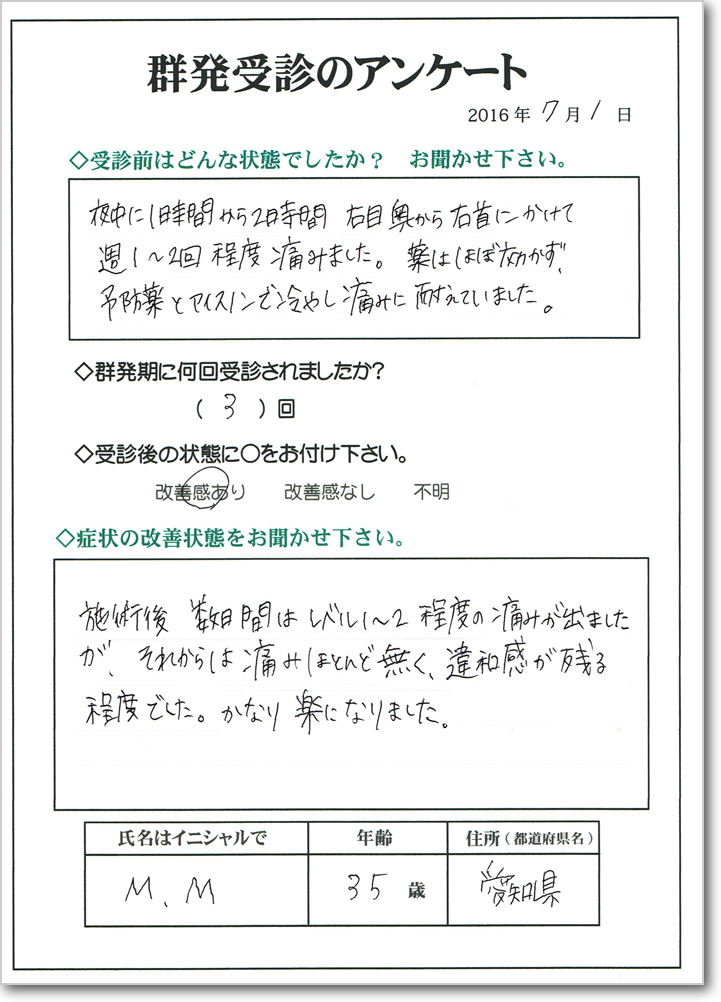 群発受診のアンケート
2016年 7月 1日
◇受診前はどんな状態でしたか？ お聞かせ下さい。
夜中に1時間から2時間 右目奥から右首にかけて
週1〜2回 程度 痛みました。 薬はほぼ効かず、
予防薬とアイスノンで冷やし痛みに耐えていました。
◇群発期に何回受診されましたか?
( 3 ) 回
◇受診後の状態に〇をお付け下さい。
改善感あり 改善感なし 不明
◇症状の改善状態をお聞かせ下さい。
施術後 数日間はレベル1〜2 程度の痛みが出ました
が、それからは痛みほとんど無く、違和感が残る
程度でした。かなり楽になりました。
氏名はイニシャルで 年齢 住所(都道府県名)
M、M 35 歳 愛知県